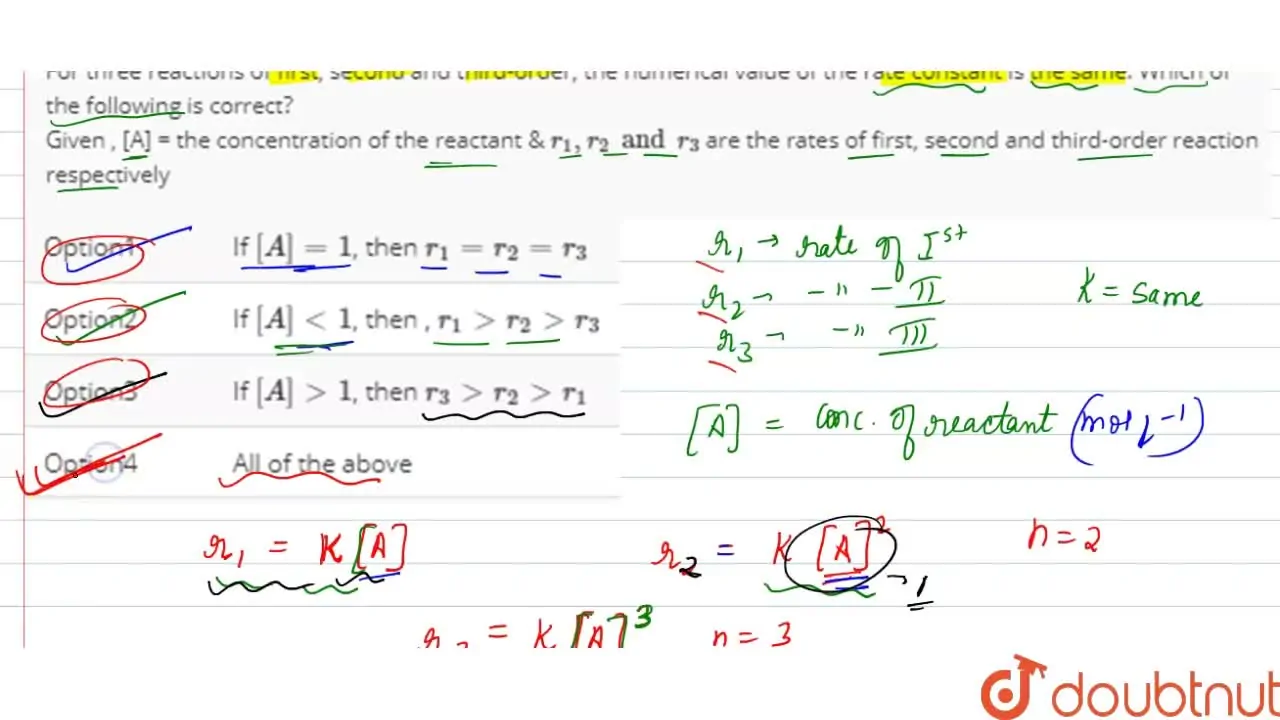 For three reactions of first, second and third-order, the numerical value of the rate constant is the same. Which of
the following is correct?
Given , [A] = the concentration of the reactant & r₁, r₂ and r₃ are the rates of first, second and third-order reaction
respectively
Option1 If [A] = 1, then r₁ = r₂ = r₃
Option2 If [A] < 1, then , r₁ > r₂ > r₃
Option3 If [A] > 1, then r₃ > r₂ > r₁
Option4 All of the above
r₁ → rate of Iˢᵗ
r₂ → -"- II
r₃ → -" III
K = same
[A] = conc. of reactant (mol L⁻¹)
r₁ = K [A]
r₂ = K [A]² → 1 n = 2
r₃ = K [A]³ n = 3
doubtnut